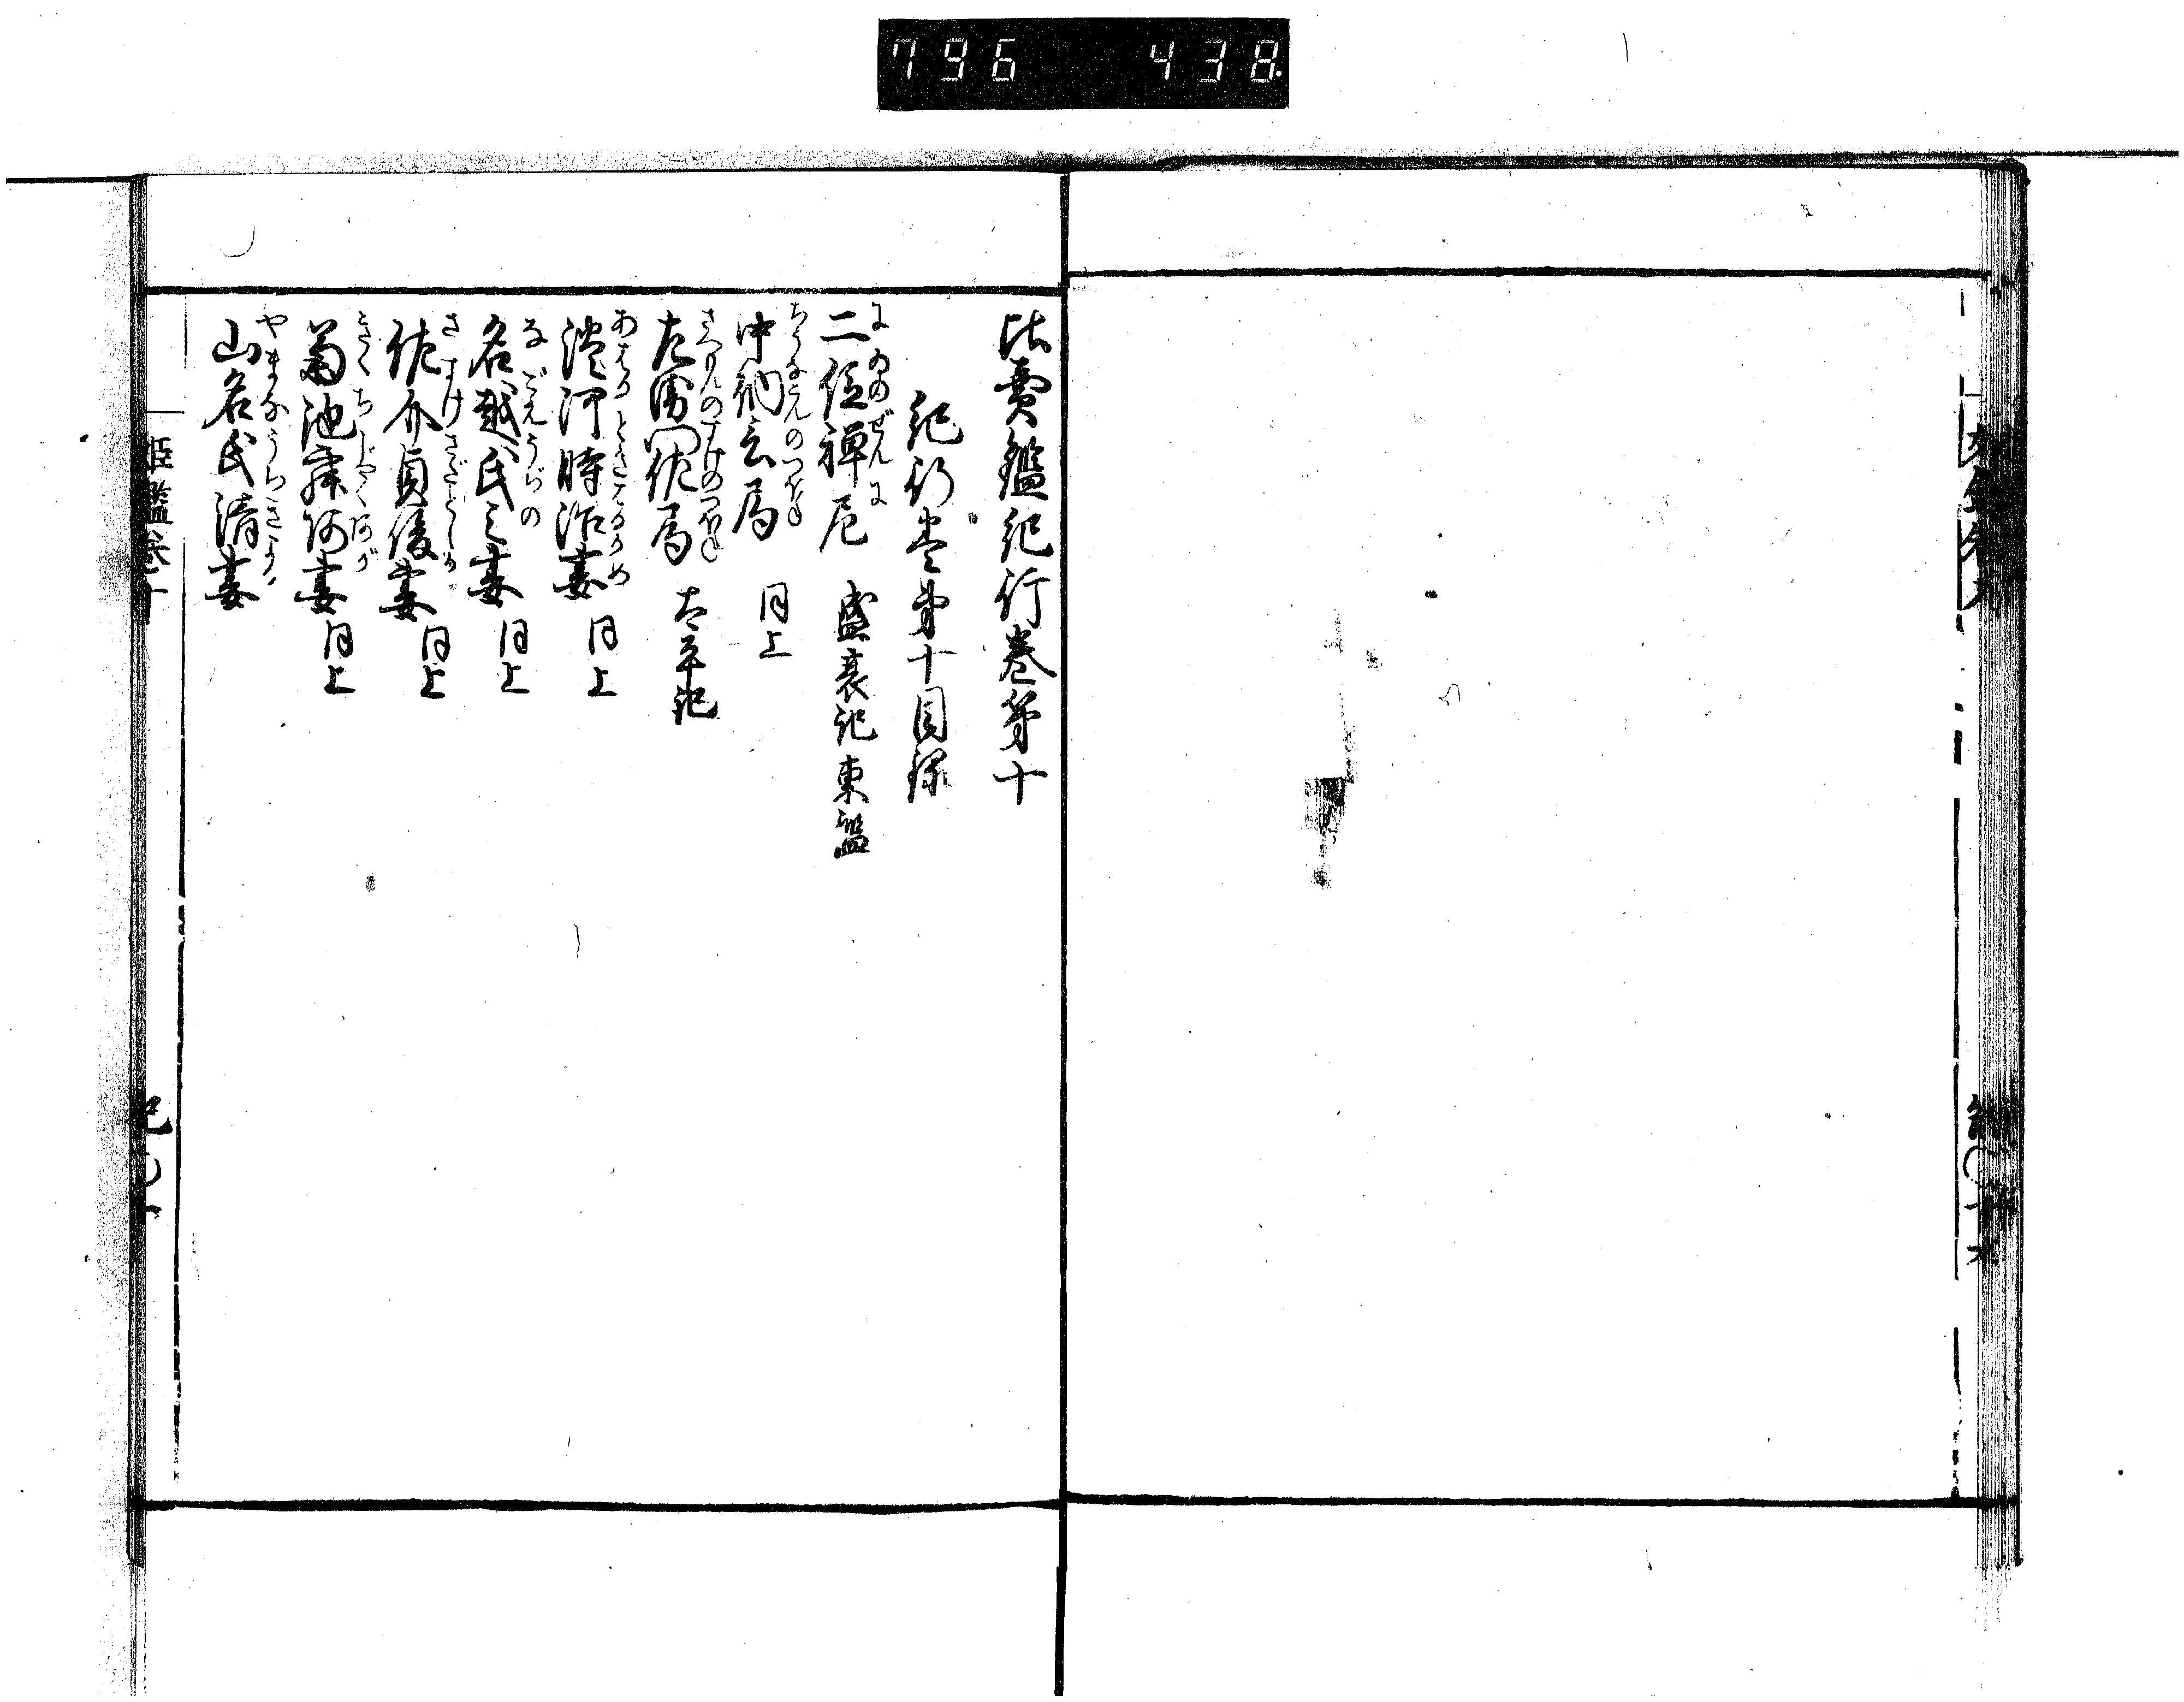 796 438
比賣鑑紀行巻第十
紀行巻第十目録
二位禅尼 盛衰記東鑑
にゐのぜんに
中納言局 同上
ちうなごんのつぼね
左衛門佐局 太平記
さゑもんのすけのつぼね
淡河時治妻 同上
名越氏之妻 同上
なごえうぢの
佐介貞俊妻 同上
さすけさだとしが
菊池寂阿妻 同上
きくちじやくあが
山名氏清妻
やまなうぢきよが
姫鑑巻十